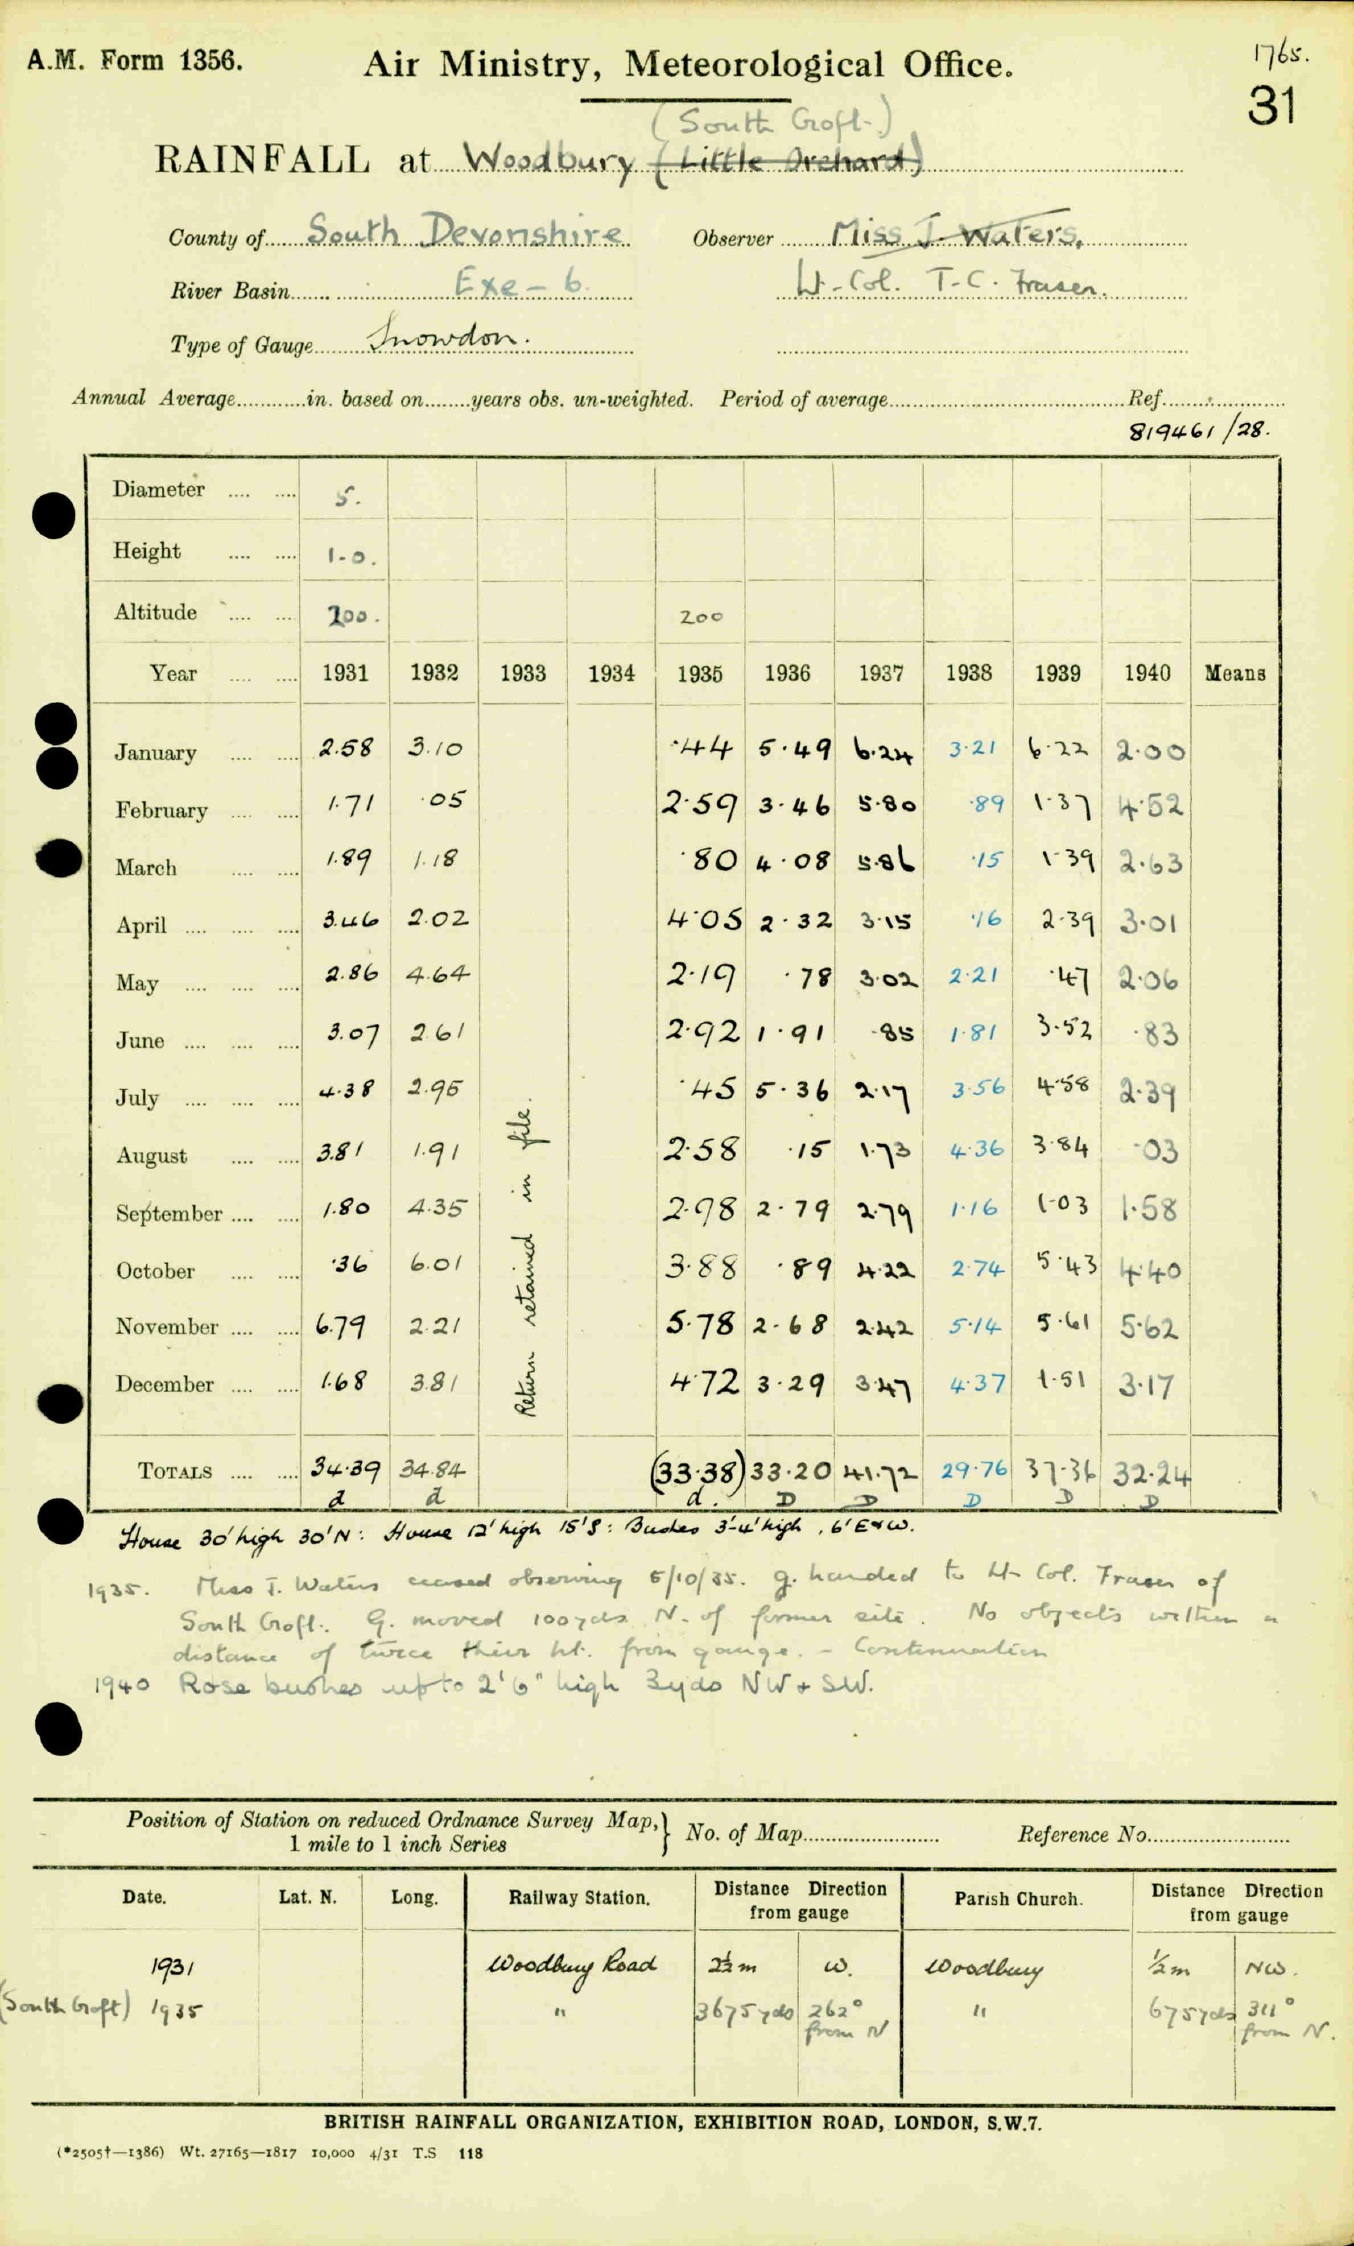 A.M. Form 1356.
Air Ministry, Meteorological Office.
1765.
31
(South Croft.)
RAINFALL at Woodbury (Little Orchard)
County of South Devonshire Observer Miss J. Waters,
River Basin Exe – 6. Lt-Col. T.C. Fraser.
Type of Gauge Snowdon.
Annual Average............in. based on........years obs. un-weighted. Period of average........ Ref.........
819461/28.
Diameter .... .... 5.
Height .... .... 1-0.
Altitude .... .... 200. 200
Year .... .... 1931 1932 1933 1934 1935 1936 1937 1938 1939 1940 Means
January .... .... 2.58 3.10 ·44 5·49 6·24 3·21 6·22 2·00
February .... .... 1.71 ·05 2·59 3·46 5·80 ·89 1·37 4·52
March .... .... 1.89 1.18 ·80 4·08 5·86 ·15 1·39 2·63
April .... .... .... 3.46 2.02 4·05 2·32 3·15 ·16 2·39 3·01
May .... .... .... 2.86 4.64 2·19 ·78 3·02 2·21 ·47 2·06
June .... .... .... 3.07 2.61 2·92 1·91 ·85 1·81 3·52 ·83
July .... .... .... 4.38 2.95 ·45 5·36 2·17 3·56 4·58 2·39
August .... .... 3.81 1.91 2·58 ·15 1·73 4·36 3·84 ·03
September .... .... 1.80 4.35 2·98 2·79 2·79 1·16 1·03 1·58
October .... .... ·36 6.01 3·88 ·89 4·22 2·74 5·43 4·40
November .... .... 6.79 2.21 5·78 2·68 2·42 5·14 5·61 5·62
December .... .... 1.68 3.81 4·72 3·29 3·47 4·37 1·51 3·17
Return retained in file.
TOTALS .... .... 34.39 34.84 (33·38) 33·20 41.72 29·76 37·36 32·24
d d d. D D D D D
House 30' high 30' N: House 12' high 15' S: Bushes 3'-4' high, 6' E & W.
1935. Miss J. Waters ceased observing 5/10/35. g. handed to Lt Col. Fraser of
South Croft. G. moved 100yds N. of former site. No objects within a
distance of twice their ht. from gauge. – Continuation
1940 Rose bushes up to 2'6" high 3yds NW & SW.
Position of Station on reduced Ordnance Survey Map,
1 mile to 1 inch Series
No. of Map........ Reference No........
Date. Lat. N. Long. Railway Station. Distance Direction from gauge Parish Church. Distance Direction from gauge
1931 Woodbury Road 2½m W. Woodbury ½m NW.
(South Croft) 1935 " 3675yds 262° from N " 675yds 311° from N.
BRITISH RAINFALL ORGANIZATION, EXHIBITION ROAD, LONDON, S.W.7.
(*2505†—1386) Wt. 27165—1817 10,000 4/31 T.S 118